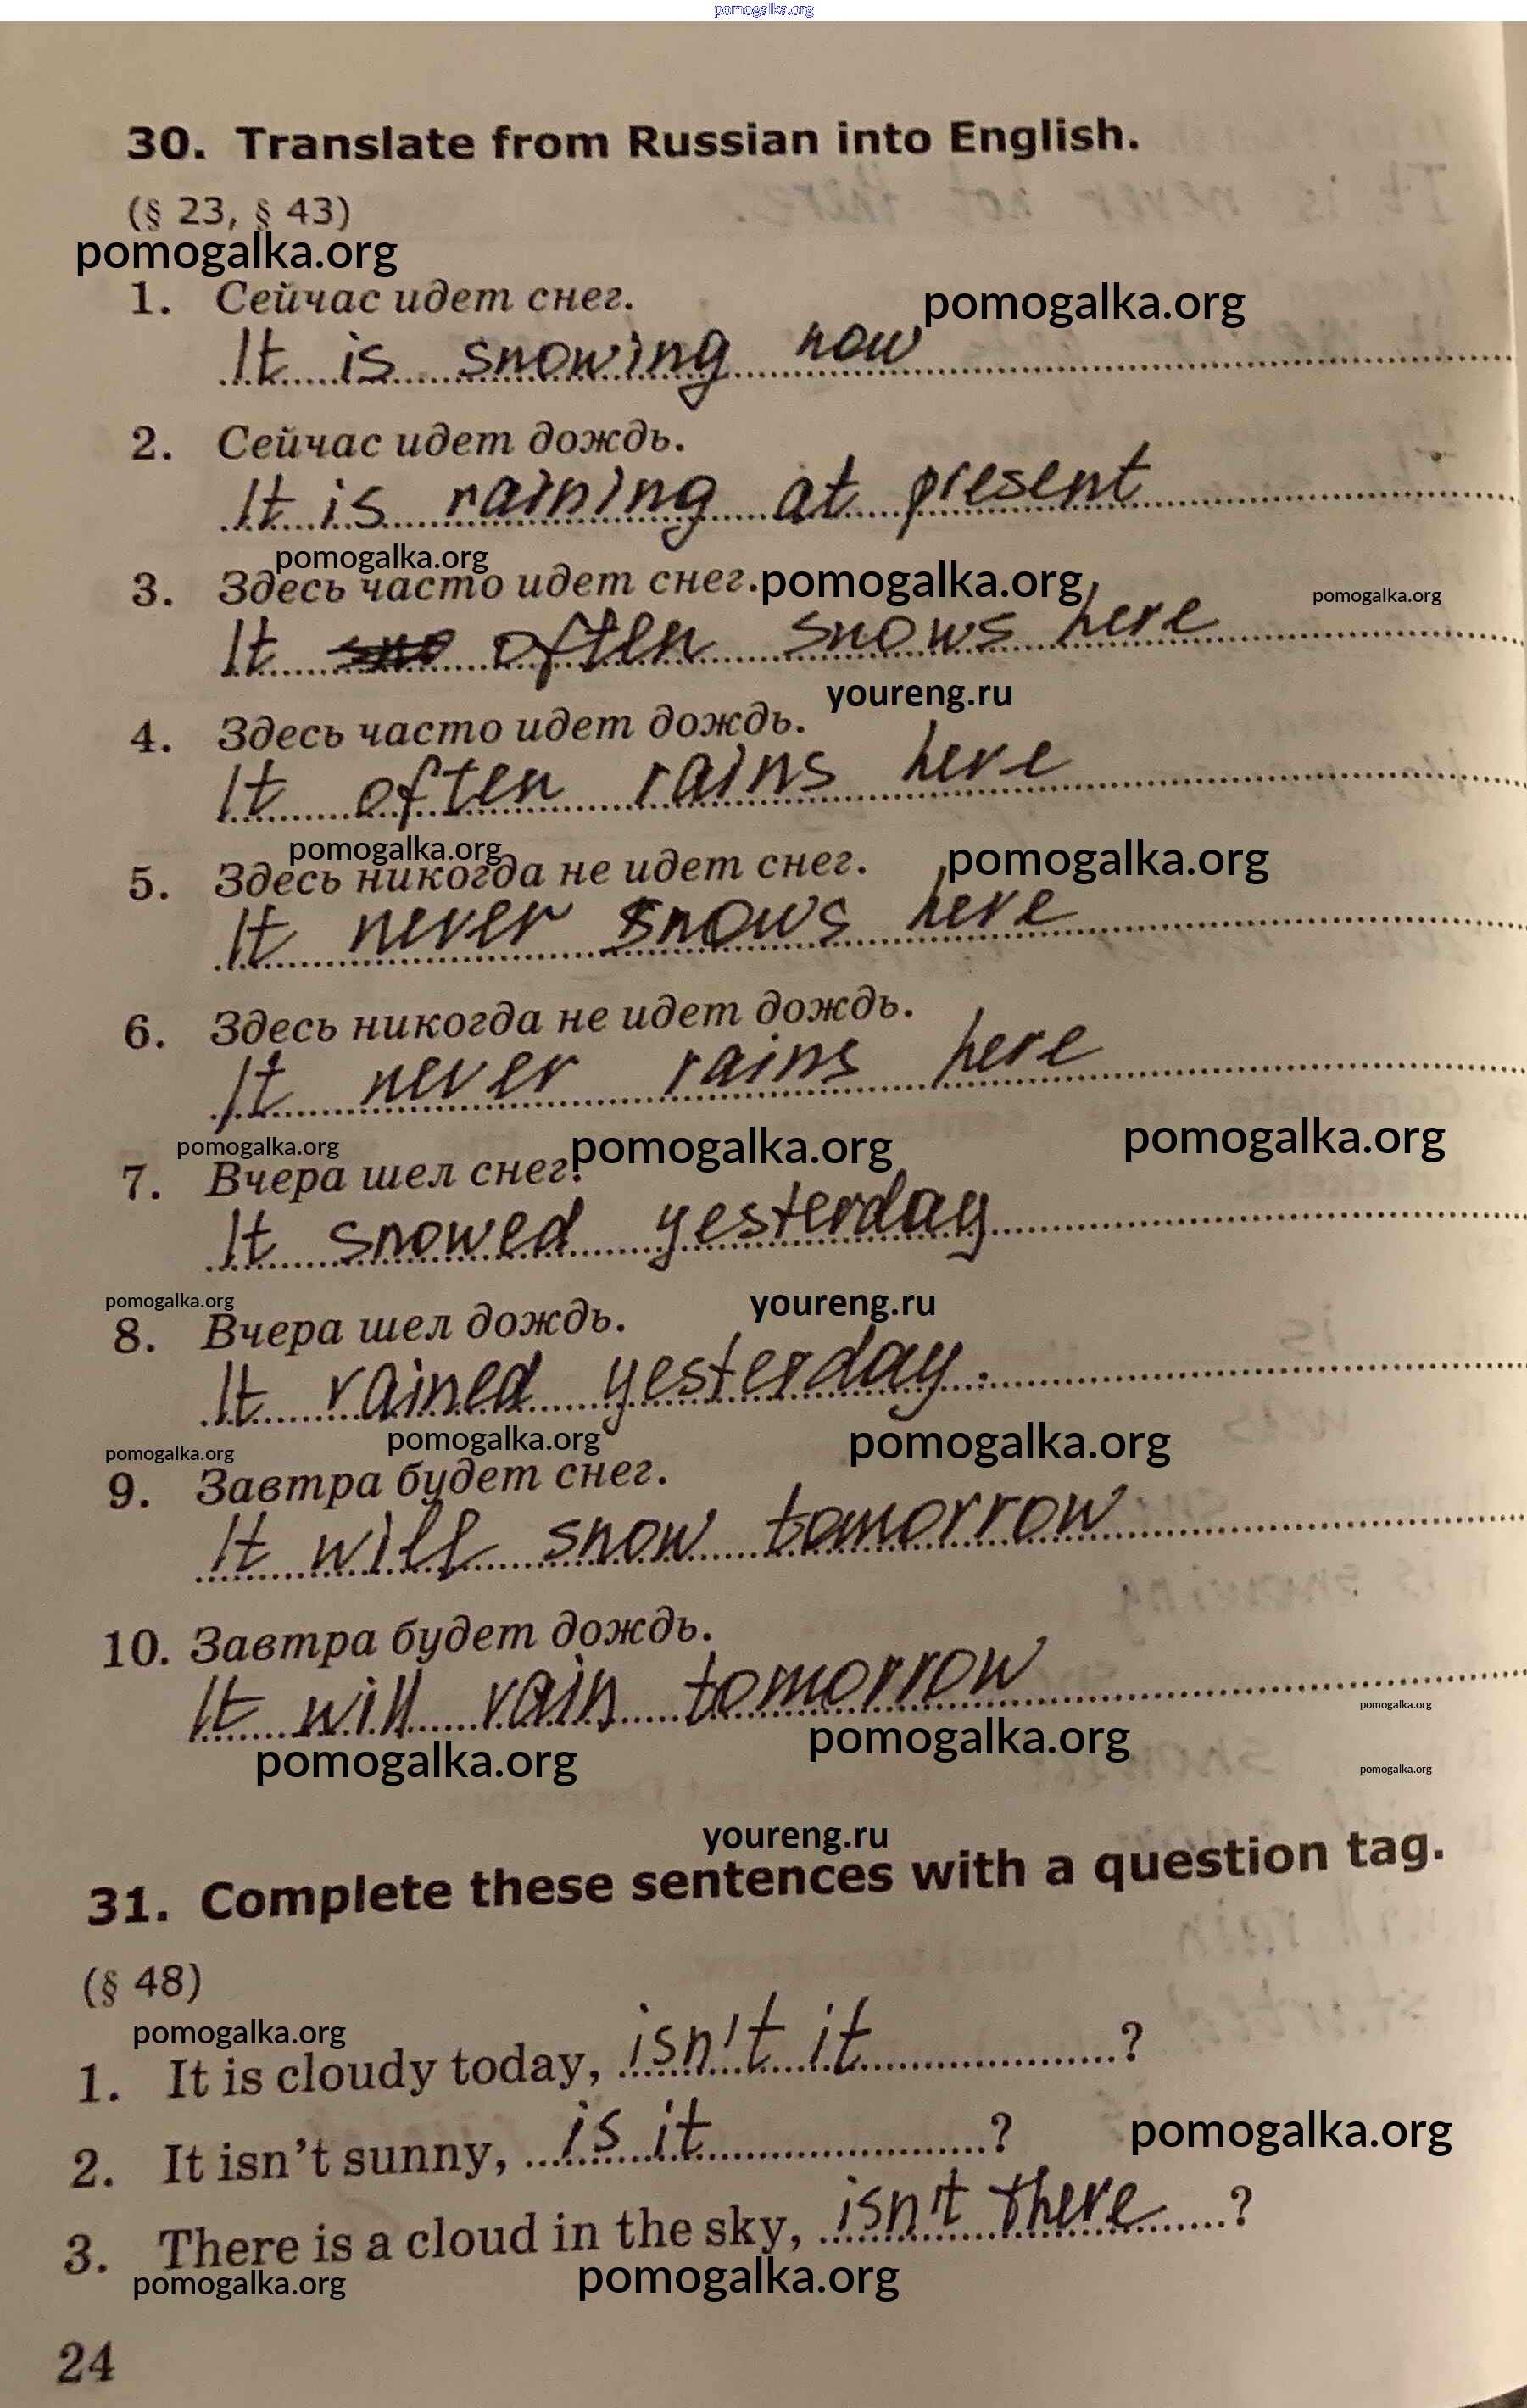 pomogalka.org
30. Translate from Russian into English.
(§ 23, § 43)
pomogalka.org
1. Сейчас идет снег.
pomogalka.org
It is snowing now
2. Сейчас идет дождь.
It is raining at present
pomogalka.org
3. Здесь часто идет снег.
pomogalka.org
pomogalka.org
It often snows here
youreng.ru
4. Здесь часто идет дождь.
It often rains here
pomogalka.org
pomogalka.org
5. Здесь никогда не идет снег.
It never snows here
6. Здесь никогда не идет дождь.
It never rains here
pomogalka.org
pomogalka.org
pomogalka.org
7. Вчера шел снег.
It snowed yesterday
pomogalka.org
youreng.ru
8. Вчера шел дождь.
It rained yesterday.
pomogalka.org
pomogalka.org
pomogalka.org
9. Завтра будет снег.
It will snow tomorrow
10. Завтра будет дождь.
It will rain tomorrow
pomogalka.org
pomogalka.org
pomogalka.org
pomogalka.org
youreng.ru
31. Complete these sentences with a question tag.
(§ 48)
pomogalka.org
1. It is cloudy today, isn't it ?
2. It isn't sunny, is it ?
pomogalka.org
3. There is a cloud in the sky, isn't there ?
pomogalka.org
pomogalka.org
24